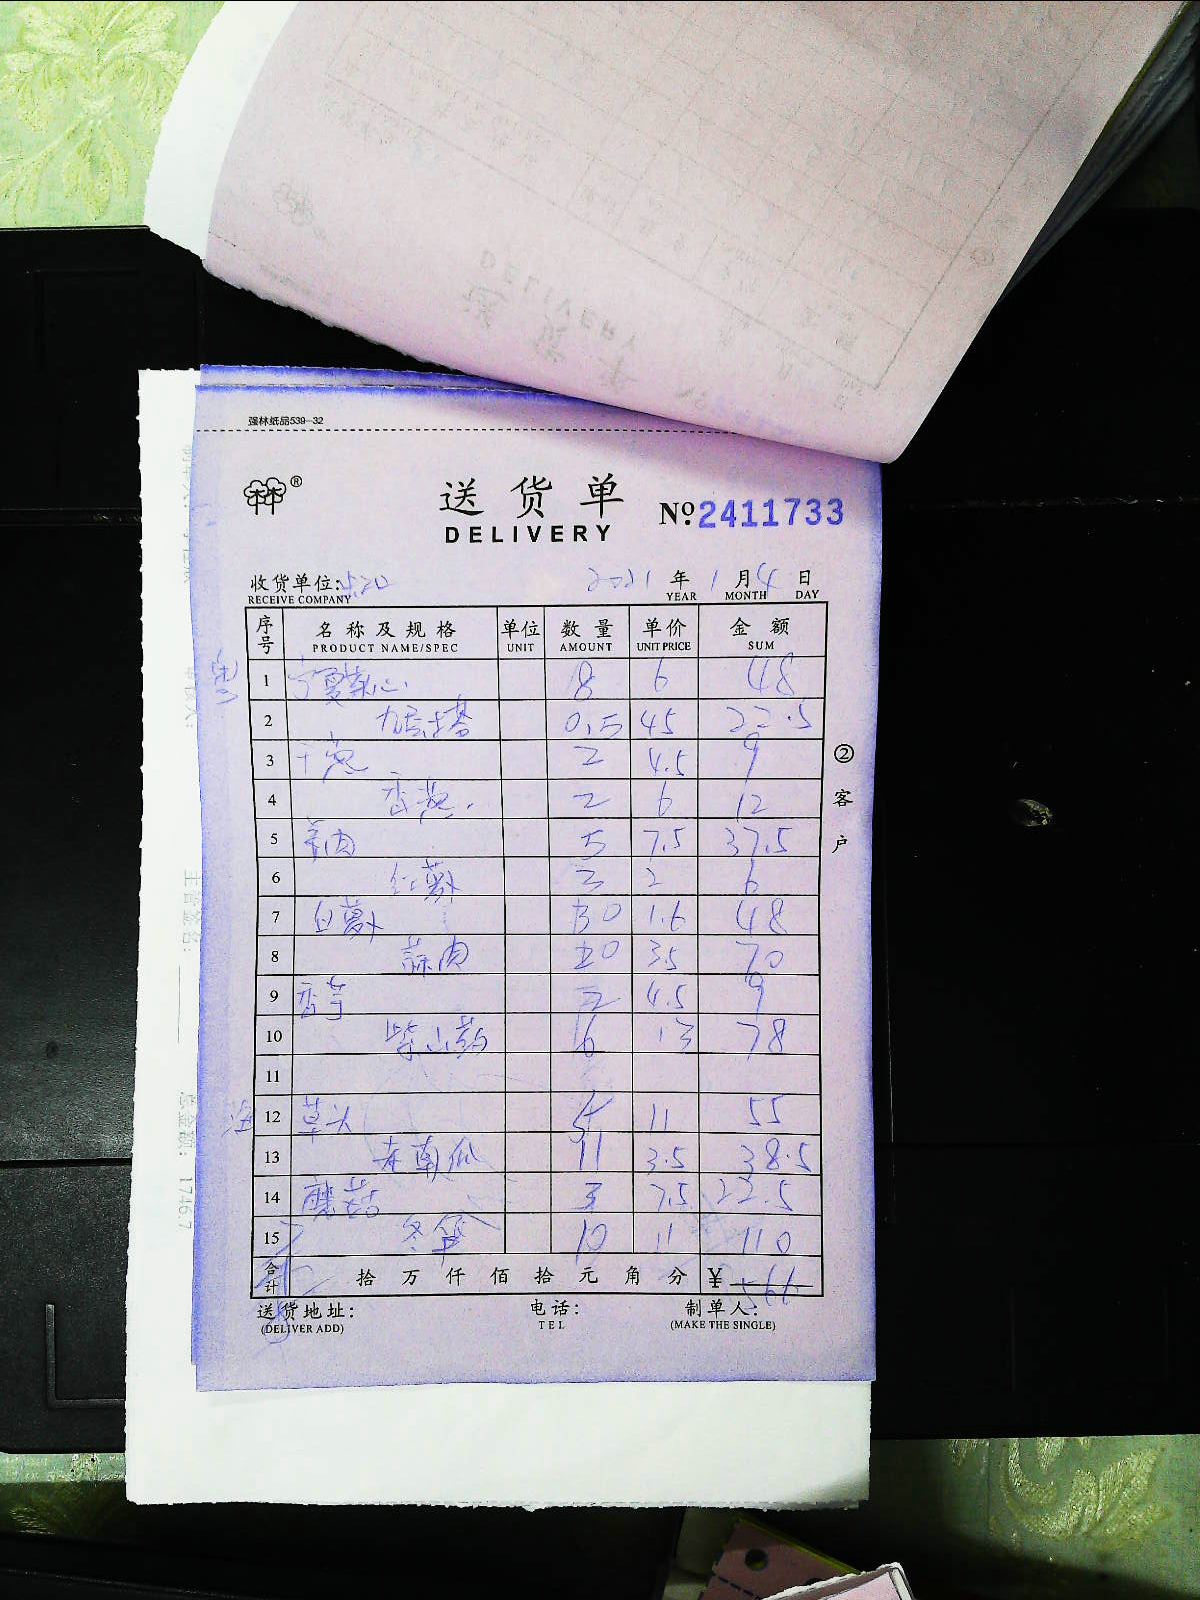 强林纸品539-32
林林® 送货单 No.2411733
DELIVERY
收货单位: 520 2021 年 1 月 4 日
RECEIVE COMPANY YEAR MONTH DAY
序号 名称及规格 单位 数量 单价 金额
PRODUCT NAME/SPEC UNIT AMOUNT UNIT PRICE SUM
1 宁夏菜心 8 6 48
2 九层塔 0.5 45 22.5
3 干葱 2 4.5 9
4 香葱 2 6 12
5 羊肉 5 7.5 37.5
6 红萝卜 3 2 6
7 白萝卜 30 1.6 48
8 蒜肉 20 35 70
9 香芋 2 4.5 9
10 柴山药 6 13 78
11
12 草头 5 11 55
13 老南瓜 11 3.5 38.5
14 蘑菇 3 7.5 22.5
15 冬笋 10 11 110
合计 拾 万 仟 佰 拾 元 角 分 ¥
送货地址: 电话: 制单人:
(DELIVER ADD) TEL (MAKE THE SINGLE)
② 客户
主管签名:
总金额: 1746.7